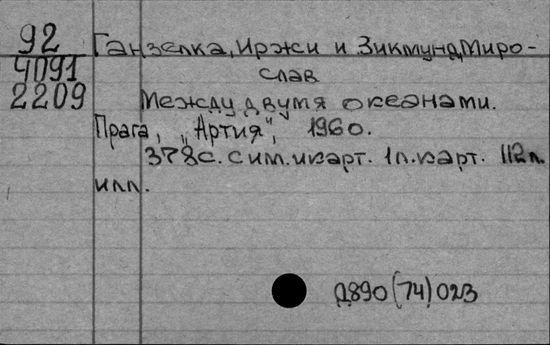 92
4091
2209
Ганзелка, Иржи и Зикмунд, Миро-
слав
Между двумя океанами.
Прага, „Артия", 1960.
378с. с ил. и карт. 1л. карт. 112л.
илл.
Д890(74)023